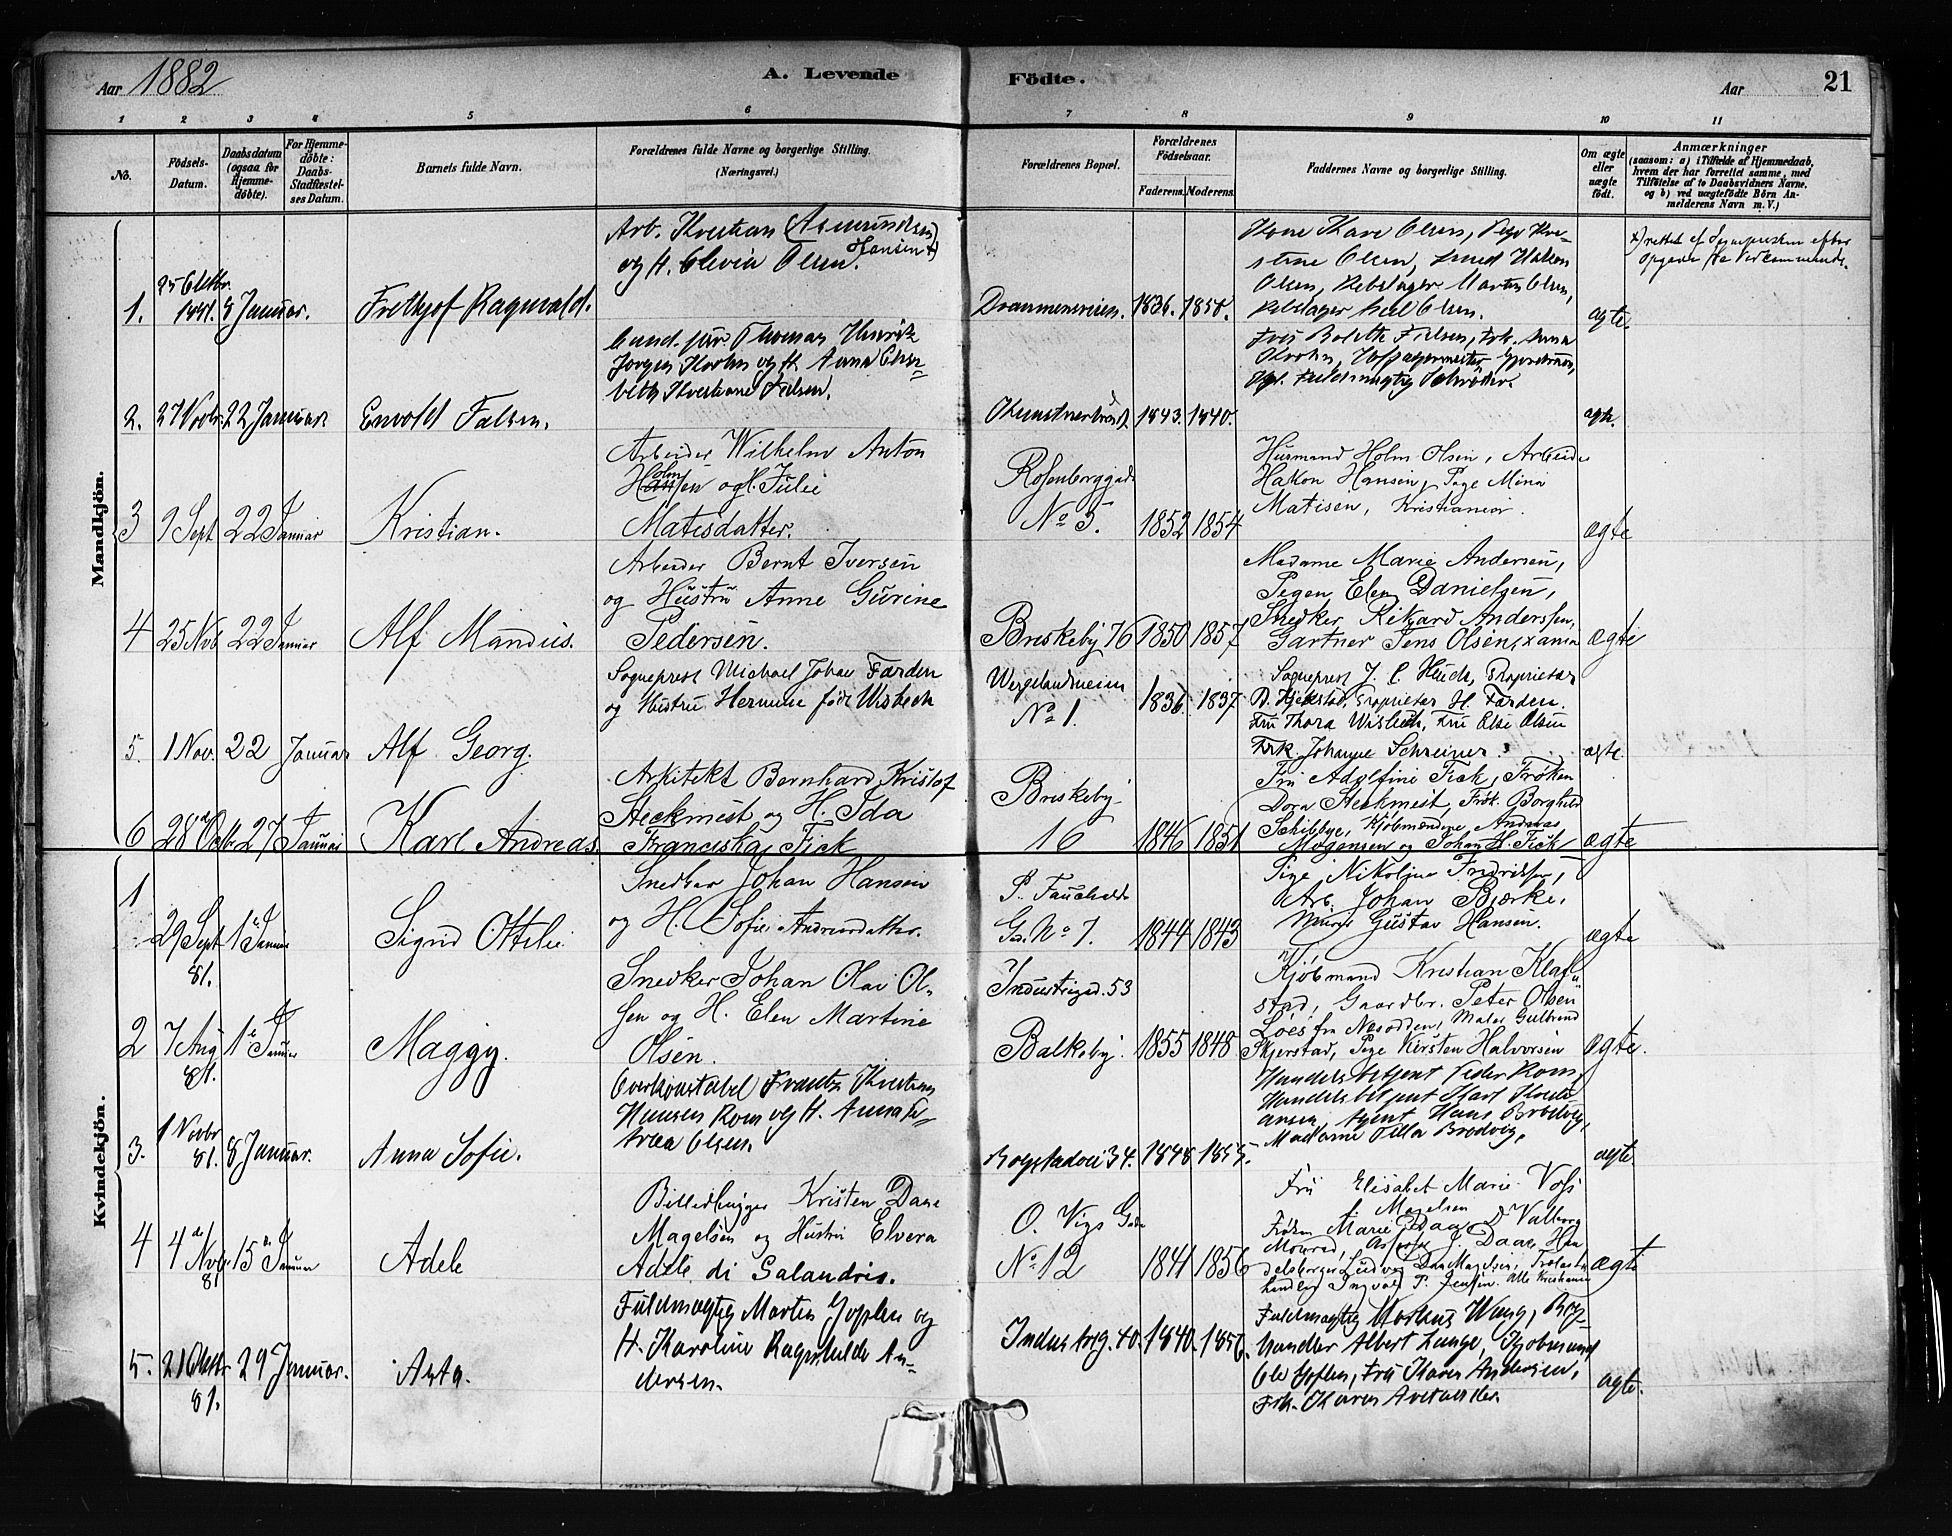 Aar 1882
A. Levende
Födte.
Aar
21
1 2 3 4 5 6 7 8 9 10 11
No.
Födsels-
Datum.
Daabsdatum
(ogsaa for
Hjemme-
döbte).
For Hjemme-
döbte:
Daabs-
Stadfæstel-
ses Datum.
Barnets fulde Navn.
Forældrenes fulde Navne og borgerlige Stilling.
(Næringsvei.)
Forældrenes Bopæl.
Forældrenes
Födselsaar.
Faderens. Moderens.
Faddernes Navne og borgerlige Stilling.
Om ægte
eller
uægte
födt.
Anmærkninger
(saasom: a) i Tilfælde af Hjemmedaab,
hvem der har forrettet samme, med
Tilföielse af to Daabsvidners Navne,
og b) ved uægtefödte Börn An-
melderens Navn m. V.)
Mandkjön.
1.
25 Oktbr.
1881.
8 Januar.
Frithjof Ragnvald.
Arb. Kristian (Asmundsen)
Hansen x)
og H. Olevia Olsen.
Drammensveien.
1836.
1850.
Kone Kare Olsen, Pige Kri-
stine Olsen, Smed Hakon
Olsen, Rebslager Martin Olsen,
Rebslager Olsen.
ægte.
x) rettet af Sognepresten efter
Opgave fra Vedkommende.
2.
27 Novbr.
22 Januar
Envold Falsen.
Cand. jur. Thomas Henrik
Jørgen Krohn og H. Anna Elisa-
beth Kristiane Falsen.
1843.
1840.
Frk. Anna
Krohn, Hofjægermester
Fuldmægtig Schrøder.
ægte.
3
9 Sept
22 Januar
Kristian.
Arbeider Wilhelm Anton
Holm
Hansen og H. Julie
Matisdatter.
Rosenborggade
No 5.
1852
1854
Husmand Holm Olsen, Arbeider
Hakon Hansen, Pige Mina
Matisen, Kristiania.
ægte
4
25 Nov
22 Januar
Alf Mandius.
Arbeider Bernt Iversen
og Hustru Anne Gurine
Pedersen.
Briskeby 76
1850
1857
Madame Marie Andersen,
Pigen Elen Danielsen,
Snedker Rikard Anderssen,
Gartner Jens Olsen, Xania
ægte
5.
1 Nov.
22 Januar
Alf Georg.
Sogneprest Michael Johan Færden
og Hustru Hermine født Wisbech
Wergelandsveien
No 1.
1836.
1837
Sogneprest J. C. Heuch, Proprietær
Proprietær H. Færden.
Fru Thora Wisbech, Fru Else Olsen
Frk. Johanne Schreiner.
ægte.
6
28 Octbr
27 Januar
Karl Andreas.
Arkitekt Bernhard Kristof
Steckmest og H. Ida
Franciska Fick
Briskeby
16
1846
1851
Fru Adolfine Fick, Frøken
Dora Steckmest, Frøk. Borghild
Schibbye, Kjøbmændene Andreas
Mogensen og Johan H. Fick
ægte
Kvindekjön.
1
29 Sept
81.
1 Januar
Sigrid Ottilie
Snedker Johan Hansen
og H. Sofie Andreasdatter.
P. Fauchalds
Gd. No 7.
1844
1843
Pige Nikoline Fredriksen,
Arb. Johan Bjerke,
Murer Gustav Hansen.
ægte
2
7 Aug
81.
1 Januar
Maggy.
Snedker Johan Olai Ol-
sen og H. Elen Martine
Olsen.
Industrigad. 53
Balkeby.
1855
1848
Kjøbmand Kristian Klaf-
stad, Gaardbr. Peter Olsen
Løes fra Nesodden, Maler Gulbrand
Skjerstad, Pige Kirsten Halvorsen
ægte.
3.
1 Novbr
81.
8 Januar.
Anna Sofie.
Overkonstabel Frantz Kristian
Hansen Rom og H. Anna Pe-
trea Olsen.
Bogstadvei 34.
1848
1855.
Handelsbetjent Peder Rom,
Handelsbetjent Karl Kristi-
ansen, Agent Hans Brodvig,
Madame Olla Brodvig.
ægte.
4
4 Novbr
81
15 Januar
Adele
Billedhugger Kristen Daae
Magelsen og Hustru Elvera
Adele di Salandris.
O. Vigs Gade
No 12
1841
1856
Fru Elisabet Marie Voss
f. Magelsen
Frøken Marie Daae, Valborg
Monrad, J. Daae, Han-
delsborger Ludvig Daa Magelsen, Trælast-
handler Ingvald P. Jensen. Alle Kristiania
ægte
5.
21 Oktbr
81.
29 Januar.
Asta.
Fuldmægtig Morten Goplen og
H. Karoline Ragnhilde An-
dersen.
Industrig. 40.
1840.
1856.
Fuldmægtig Markus Wang, Bog-
handler Albert Lange, Kjøbmand
Ole Goplen, Fru Karen Andersen,
Frk. Karen
ægte.